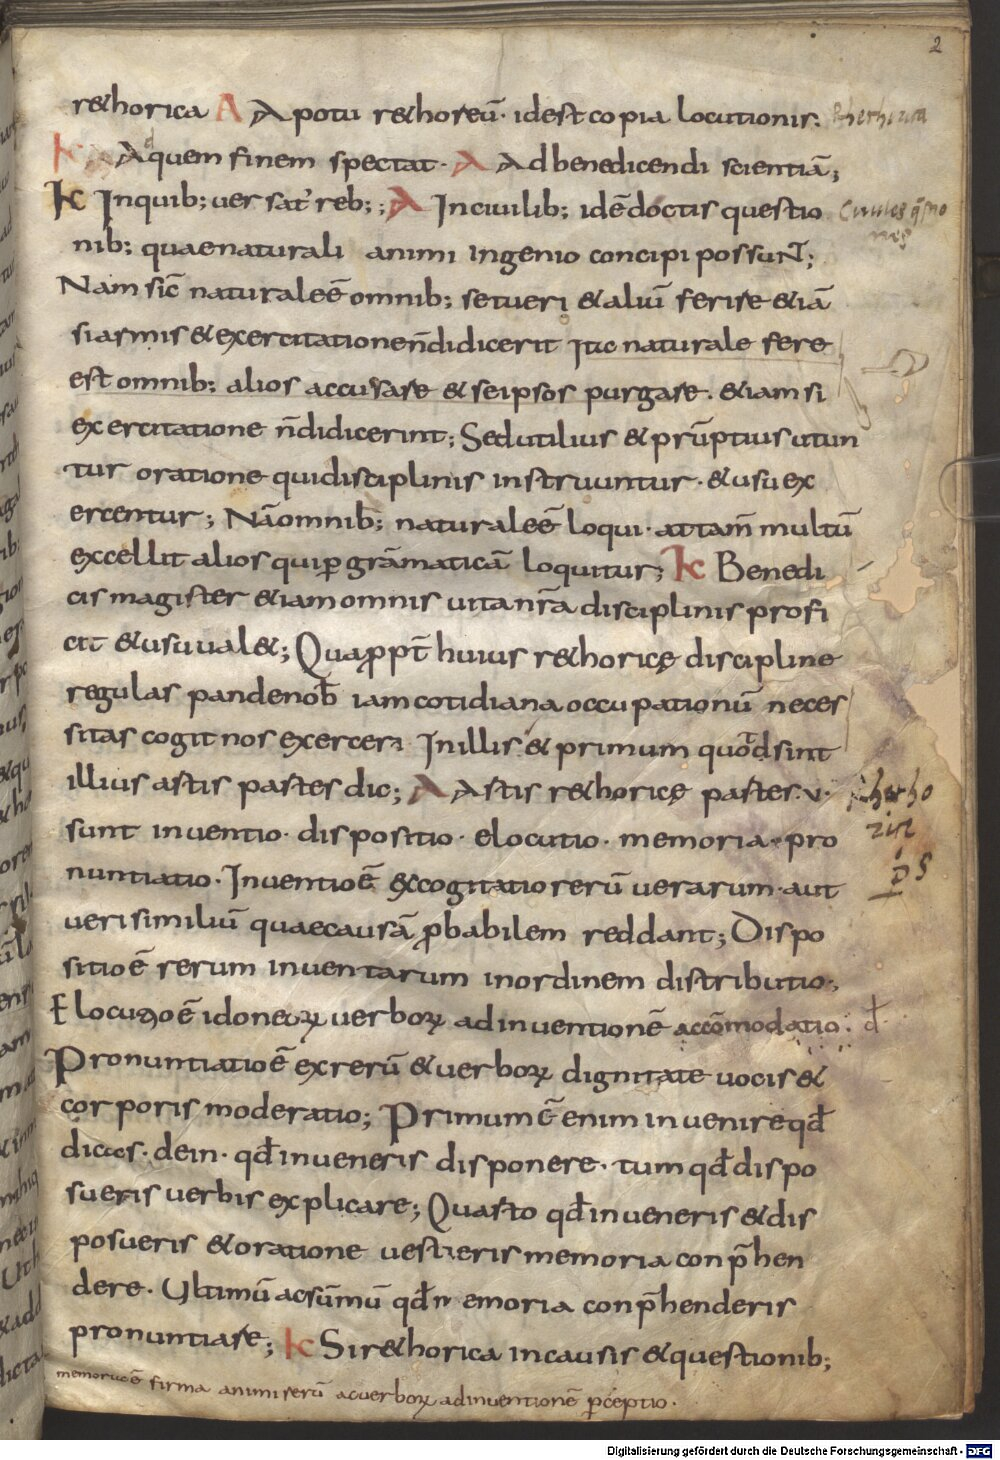 2
rethorica A Apotu rethoreū· idest copia locutionis. Rhethorica
K Adquem finem spectat· A Ad benedicendi scientiā;
K Inquib; versat' reb;; A Incivilib; idē doctis questio Civiles q̄stio
nib; quae naturali animi ingenio concipi possunt; nes
Nam sic̄ naturale ē omnib; se tueri & aliū ferire & iā
si armis & exercitatione n̄ didicerit ita naturale fere
est omnib; alios accusare & se ipsos purgare. & iam si
exercitatione n̄ didicerint; Sed utilius & prūptius utun
tur oratione qui disciplinis instruuntur· & usu ex
ercentur; Nā omnib; naturale ē loqui· attam̄ multū
excellit alios qui ꝑ grāmaticā loquitur; K Bene di
cis magister & iam omnis vita nr̄a disciplinis profi
cit & usu valet; Quapropt̄ huius rethoricę discipline
regulas pande nob̄ iam cotidiana occupationū neces
sitas cogit nos exerceri In illis & primum quod sint
illius artis partes dic; A Artis rethoricę partes·v· Rhetho
sunt inventio· dispositio· elocutio· memoria· pro ricę
nuntiatio· Inventio ē excogitatio rerū verarum· aut p̄s
veri similiū quae causā ꝓbabilem reddant; Dispo
sitio ē rerum inventarum in ordinem distributio·,
Elocutio ē idoneoꝝ verboꝝ ad inventionē accōmodatio: d̄
Pronuntiatio ē ex rerū & verboꝝ dignitate vocis &
corporis moderatio; Primum ē enim invenire qd̄
dicas· dein· qd̄ inveneris disponere· tum qd̄ dispo
sueris verbis explicare; Quarto qd̄ inveneris & dis
posueris & oratione vestieris memoria conp̄hen
dere· Ultimū ac sūmū qd̄ memoria conp̄henderis
pronuntiare; K Si rethorica in causis & questionib;
memoria ē firma animi rerū ac verboꝝ ad inventionē ꝑceptio·
Digitalisierung gefördert durch die Deutsche Forschungsgemeinschaft - DFG